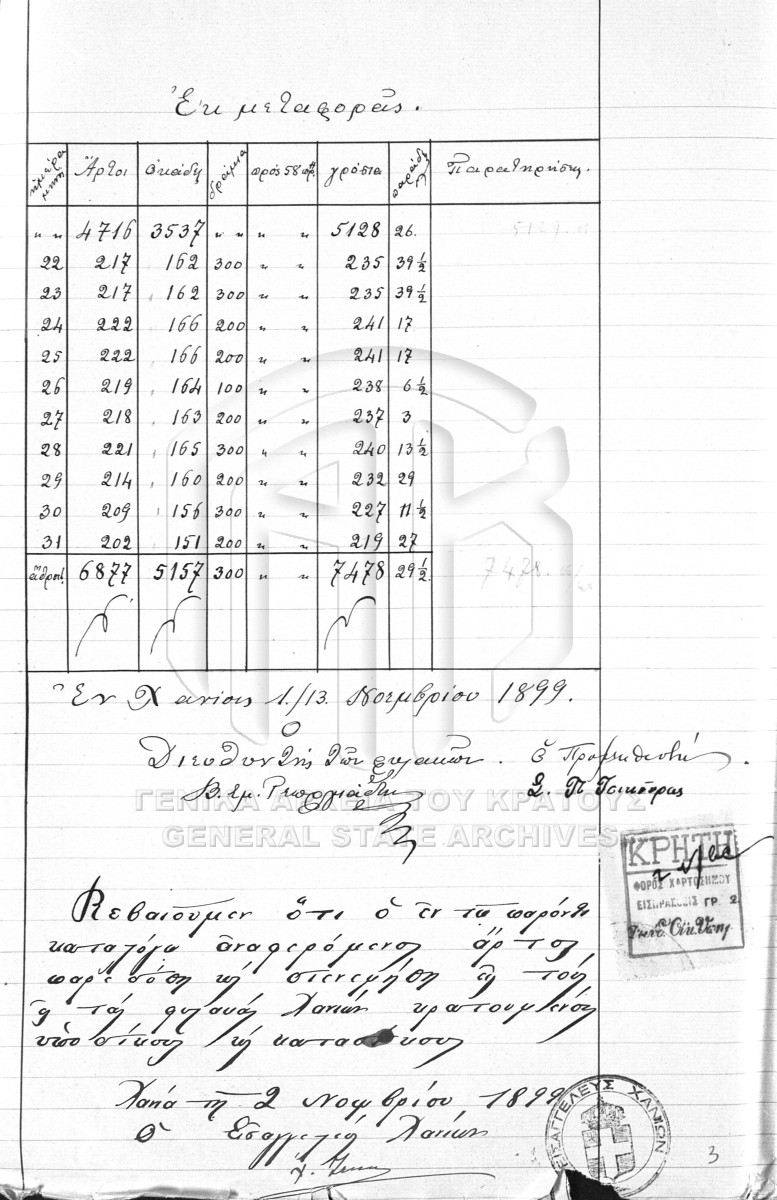 Ἐκ μεταφορᾶς.
ἡμέραι μηνὸς Ἄρτοι ὀκάδες δράμια πρὸς 58 γρόσια παράδες Παρατηρήσεις.
" " 4716 3537 " " " " 5128 26.
22 217 162 300 " " 235 39 1/2
23 217 162 300 " " 235 39 1/2
24 222 166 200 " " 241 17
25 222 166 200 " " 241 17
26 219 164 100 " " 238 6 1/2
27 218 163 200 " " 237 3
28 221 165 300 " " 240 13 1/2
29 214 160 200 " " 232 29
30 209 156 300 " " 227 11 1/2
31 202 151 200 " " 219 27
6877 5157 300 " " 7478 29 1/2
Ἐν Χανίοις 1./13. Νοεμβρίου 1899.
Ὁ
Διευθυντὴς τῶν φυλακῶν. Ὁ Προμηθευτής.
Β. Εμ. Γεωργιάδης Σ. Π. Τσικούρας
ΓΕΝΙΚΑ ΑΡΧΕΙΑ ΤΟΥ ΚΡΑΤΟΥΣ
GENERAL STATE ARCHIVES
ΚΡΗΤΗ
ΦΟΡΟΣ ΧΑΡΤΟΣΗΜΟΥ
ΕΙΣΠΡΑΞΕΙΣ ΓΡ. 2
Βεβαιοῦμεν ὅτι ὁ ἐν τῷ παρόντι
καταλόγῳ ἀναφερόμενος ἄρτος
παρεδόθη καὶ διενεμήθη εἰς τοὺς
εἰς τὰς φυλακὰς Χανίων κρατουμένους
ὑποδίκους καὶ καταδίκους
Χανιὰ τῇ 2 Νοεμβρίου 1899
Ὁ Εἰσαγγελεὺς Χανίων
ΕΙΣΑΓΓΕΛΕΥΣ ΧΑΝΙΩΝ
3